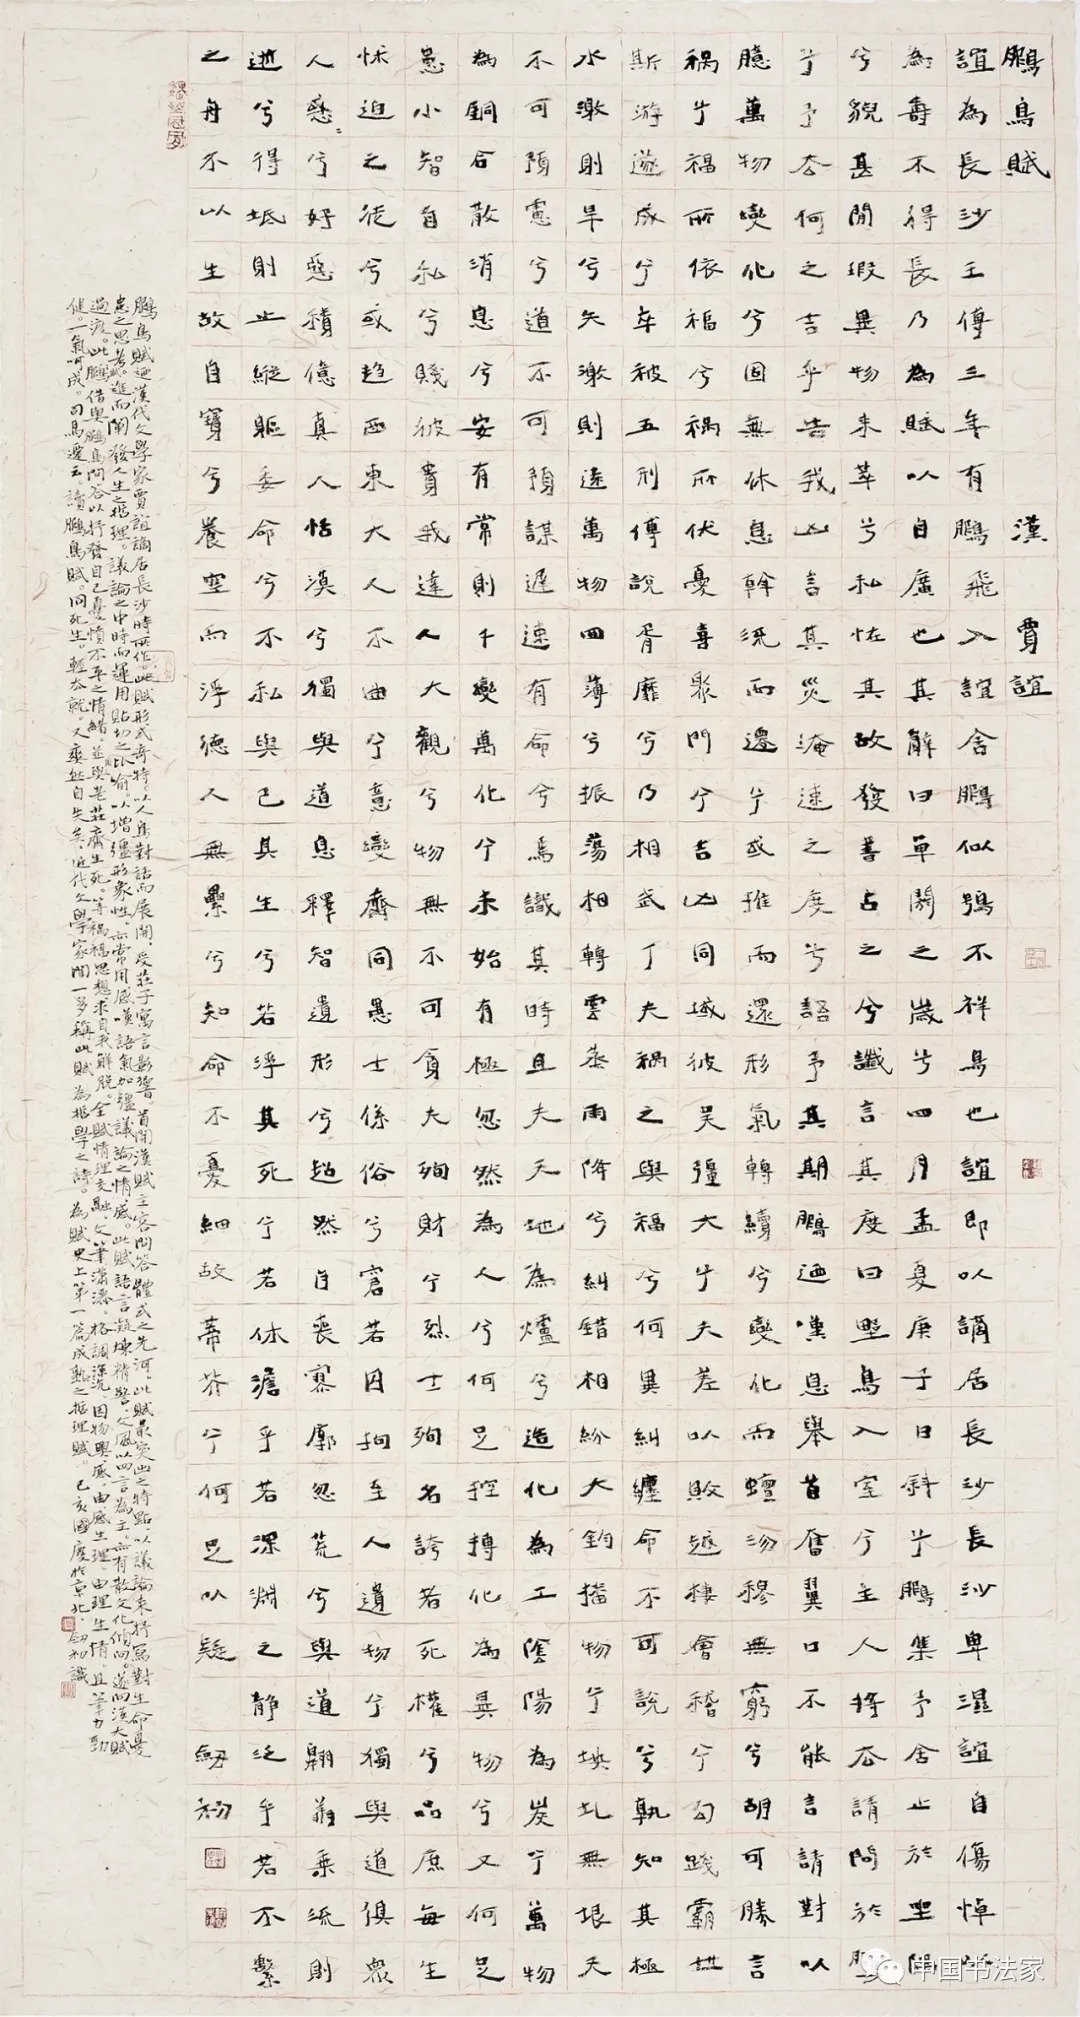 鵩鳥賦 漢 賈誼
誼為長沙王傅三年有鵩飛入誼舍鵩似鴞不祥鳥也誼即以謫居長沙長沙卑濕誼自傷悼以
為壽不得長乃為賦以自廣也其辭曰單閼之歲兮四月孟夏庚子日斜兮鵩集予舍止於坐隅
兮貌甚閒暇異物來萃兮私怪其故發書占之兮讖言其度曰野鳥入室兮主人將去請問於鵩
兮予去何之吉乎告我凶言其災淹速之度兮語予其期鵩迺嘆息舉首奮翼口不能言請對以
臆萬物變化兮固無休息斡流而遷兮或推而還形氣轉續兮變化而蟺沕穆無窮兮胡可勝言
禍兮福所依福兮禍所伏憂喜聚門兮吉凶同域彼吳彊大兮夫差以敗越棲會稽兮勾踐霸世
斯游遂成兮卒被五刑傅說胥靡兮乃相武丁夫禍之與福兮何異糾纆命不可說兮孰知其極
水激則旱兮矢激則遠萬物回薄兮振蕩相轉雲蒸雨降兮糾錯相紛大鈞播物兮坱圠無垠天
不可預慮兮道不可預謀遲速有命兮焉識其時且夫天地為爐兮造化為工陰陽為炭兮萬物
為銅合散消息兮安有常則千變萬化兮未始有極忽然為人兮何足控摶化為異物兮又何足
患小智自私兮賤彼貴我達人大觀兮物無不可貪夫殉財兮烈士殉名誇者死權兮品庶每生
怵迫之徒兮或趨西東大人不曲兮意變齊同愚士係俗兮窘若囚拘至人遺物兮獨與道俱眾
人惑〻兮好惡積億真人恬漠兮獨與道息釋智遺形兮超然自喪寥廓忽荒兮與道翱翔乘流則
逝兮得坻則止縱軀委命兮不私與己其生兮若浮其死兮若休澹乎若深淵之靜泛乎若不繫
之舟不以生故自寶兮養空而浮德人無累兮知命不憂細故蒂芥兮何足以疑 劍初
鵩鳥賦迺漢代文學家賈誼謫居長沙時所作。此賦形式奇特。以人鳥對話而展開，受莊子寓言影響。首開漢賦主客問答體式之先河。此賦最突出之特點，以議論來抒寫對生命憂
患之思考。進而闡發人生之哲理。議論之中時而運用貼切之比喻。以增彊形象性，亦常用感嘆語氣加彊議論之情感。此賦語言凝煉精警，文風以四言為主。亦有散文化傾向。遂向漢大賦
過渡。此賦借與鵩鳥問答以抒發自己憂憤不平之情緒。並與老莊齊生死。等禍福思想求自我解脫。全賦情理交融，文筆瀟灑，格調深沉。因物興感，由感生理。由理生情。且筆力勁
健。一氣呵成。司馬遷云。讀鵩鳥賦。同死生。輕去就。又爽然自失矣。近代文學家聞一多稱此賦為哲學之詩。為賦史上第一篇成熟之哲理賦。己亥國慶於京北，劍初識
中国书法家